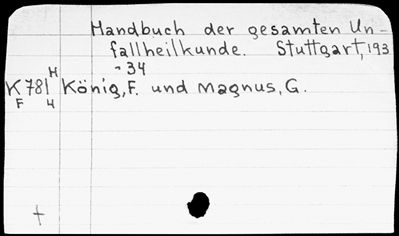 Handbuch der gesamten Un-
fallheilkunde. Stuttgart, 193
-34
H
K 781 König, F. und Magnus, G.
F H